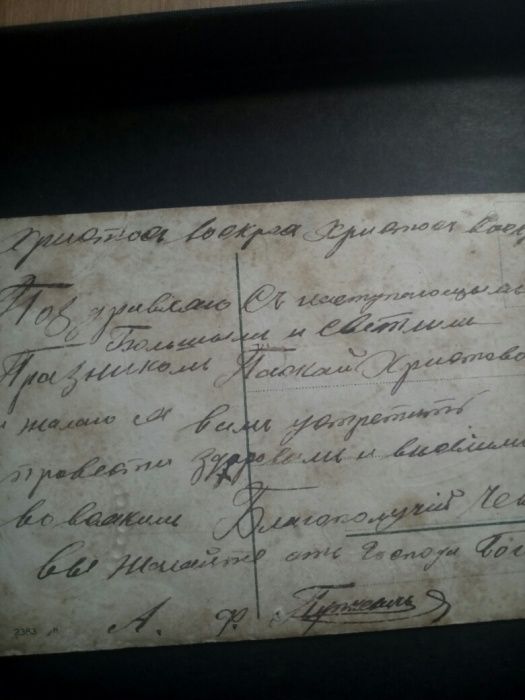 Христосъ воскреса Христосъ воск
Поздравляю Съ наступающимъ
Большымъ и светлымъ
Празникомъ Пасхай Христово
и жалаю я вамъ устретить
провести здоровымъ и висёлыми
во всякимъ Благополучий Чем
Вы жалайте отъ Господа Бог
А. Ф.
2383